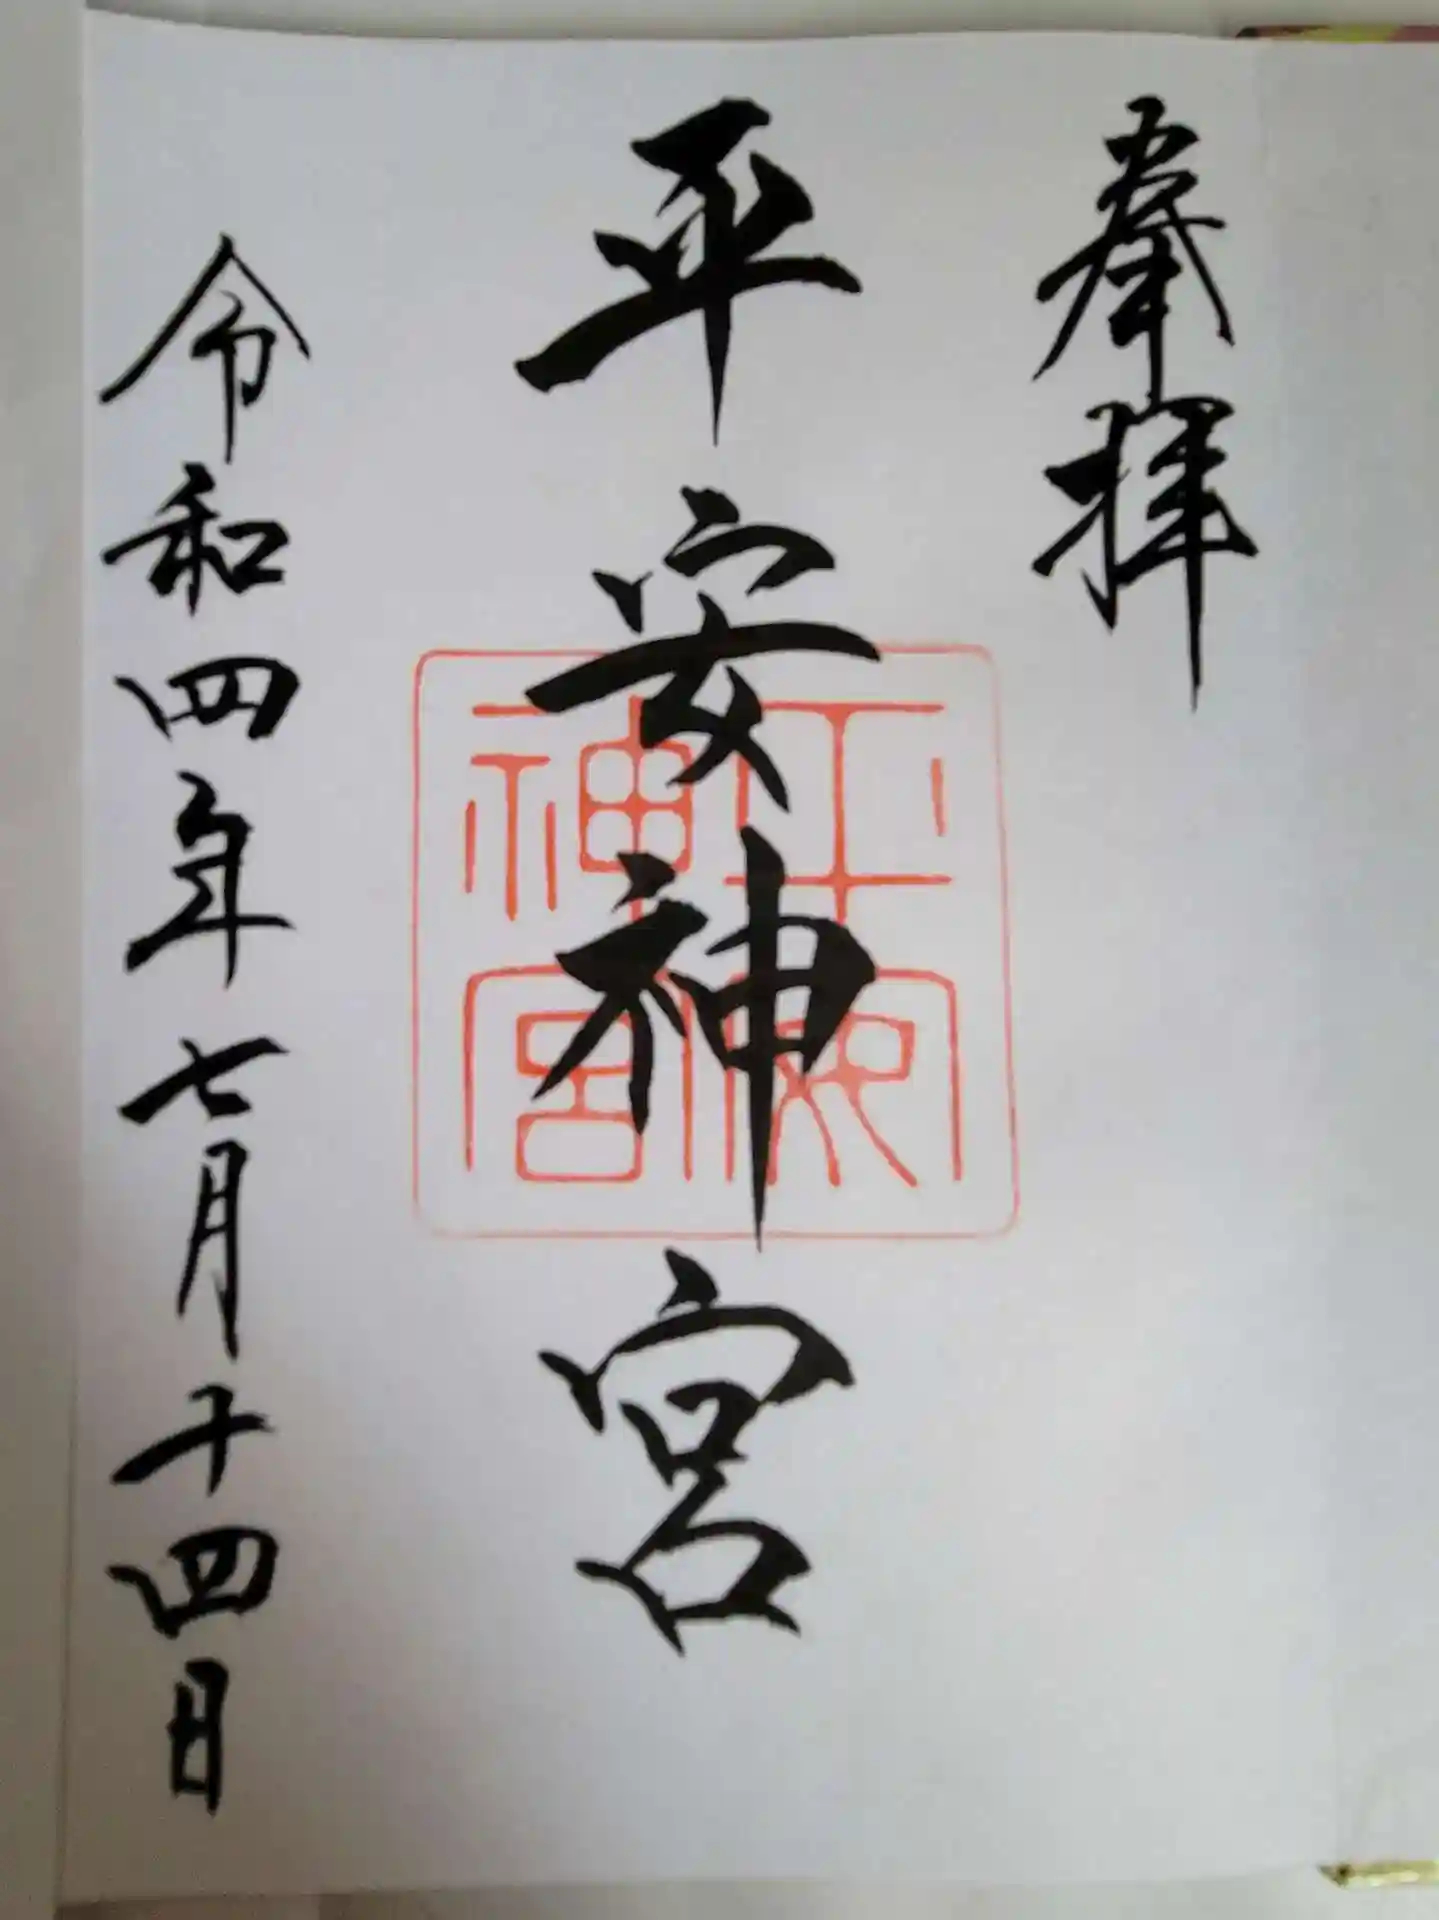 奉拝
平安神宮
平安神宮
令和四年七月十四日